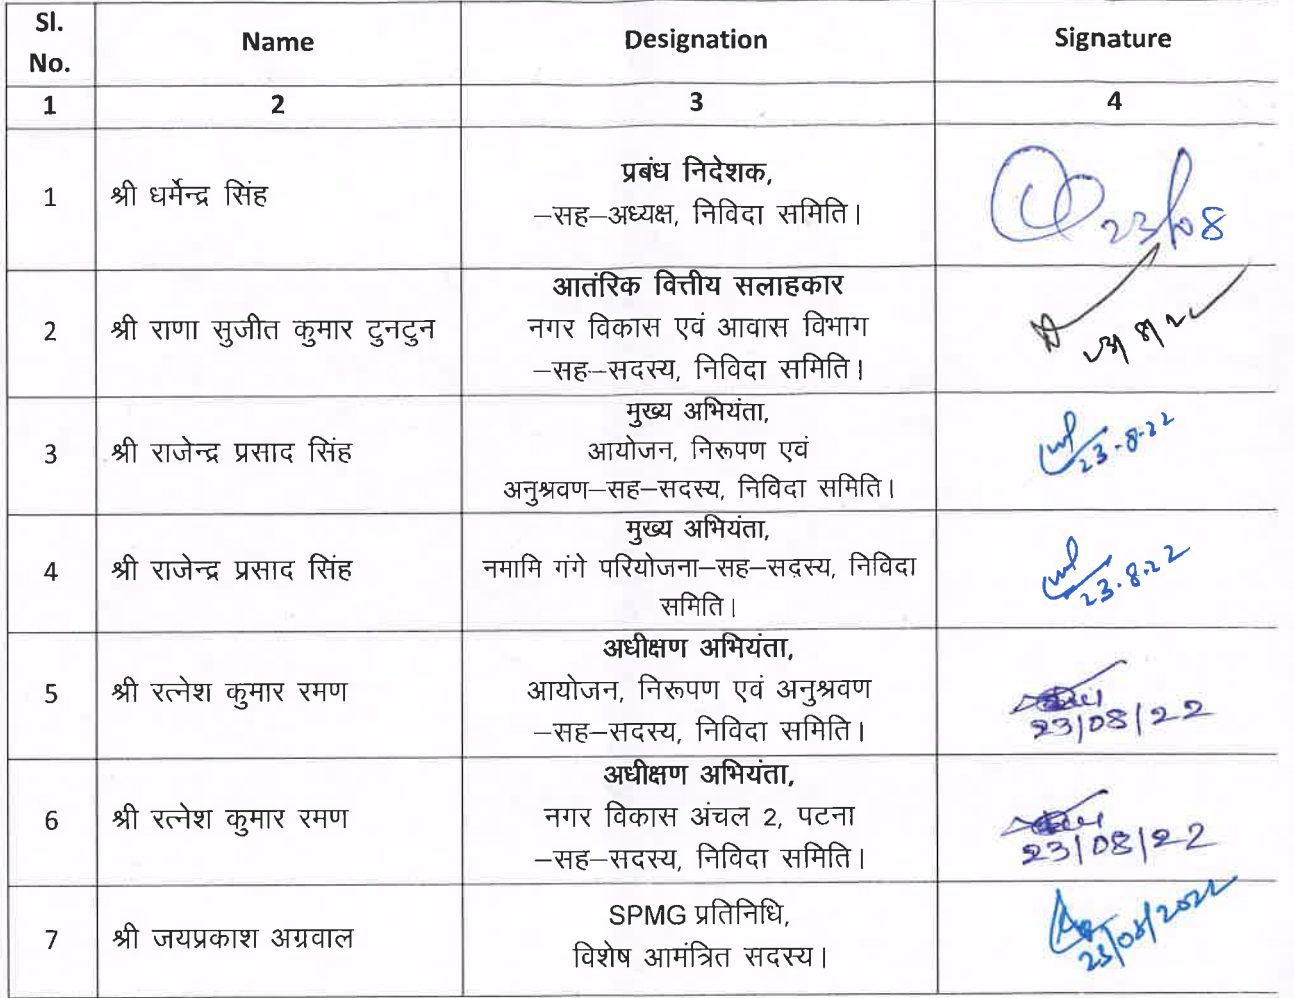 Sl.
No.
Name
Designation
Signature
1
2
3
4
1
श्री धर्मेन्द्र सिंह
प्रबंध निदेशक,
–सह–अध्यक्ष, निविदा समिति।
23/08
2
श्री राणा सुजीत कुमार टुनटुन
आतंरिक वित्तीय सलाहकार
नगर विकास एवं आवास विभाग
–सह–सदस्य, निविदा समिति।
3
श्री राजेन्द्र प्रसाद सिंह
मुख्य अभियंता,
आयोजन, निरूपण एवं
अनुश्रवण–सह–सदस्य, निविदा समिति।
23-8-22
4
श्री राजेन्द्र प्रसाद सिंह
मुख्य अभियंता,
नमामि गंगे परियोजना–सह–सदस्य, निविदा
समिति।
23.8.22
5
श्री रत्नेश कुमार रमण
अधीक्षण अभियंता,
आयोजन, निरूपण एवं अनुश्रवण
–सह–सदस्य, निविदा समिति।
23/08/22
6
श्री रत्नेश कुमार रमण
अधीक्षण अभियंता,
नगर विकास अंचल 2, पटना
–सह–सदस्य, निविदा समिति।
23/08/22
7
श्री जयप्रकाश अग्रवाल
SPMG प्रतिनिधि,
विशेष आमंत्रित सदस्य।
23/08/2022